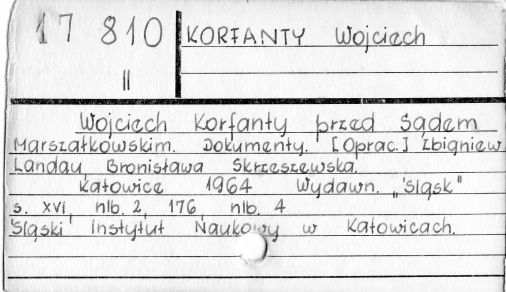 17 810 KORFANTY Wojciech
II
Wojciech Korfanty przed Sądem
Marszałkowskim. Dokumenty. [Oprac.] Zbigniew
Landau, Bronisława Skrzeszewska.
Katowice 1964 Wydawn. „Śląsk"
s. XVI, nlb. 2, 176, nlb. 4
Śląski Instytut Naukowy w Katowicach.